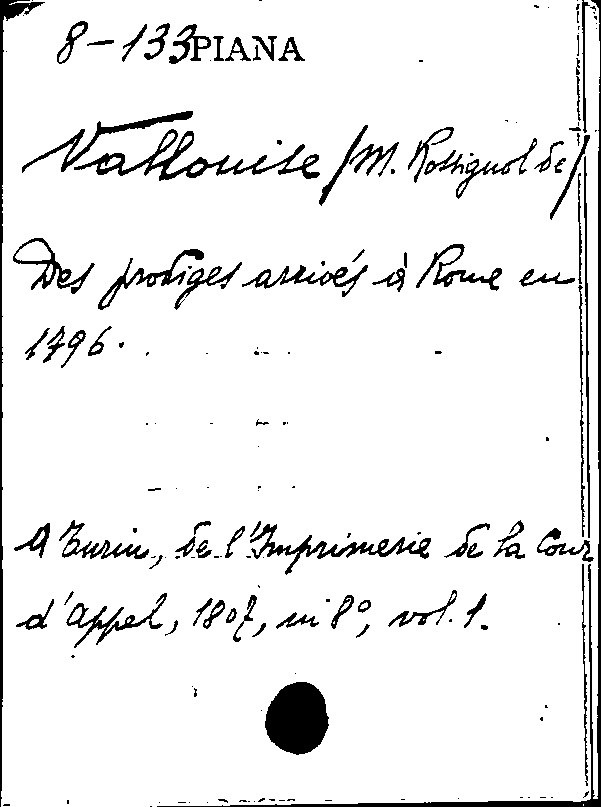 8-133 PIANA
Vallouise /M. Rossignol de/
Des prodiges arrivés à Rome en
1796.
A Turin, de l'Imprimerie de la Cour
d'Appel, 1807, in 8°, vol. 1.